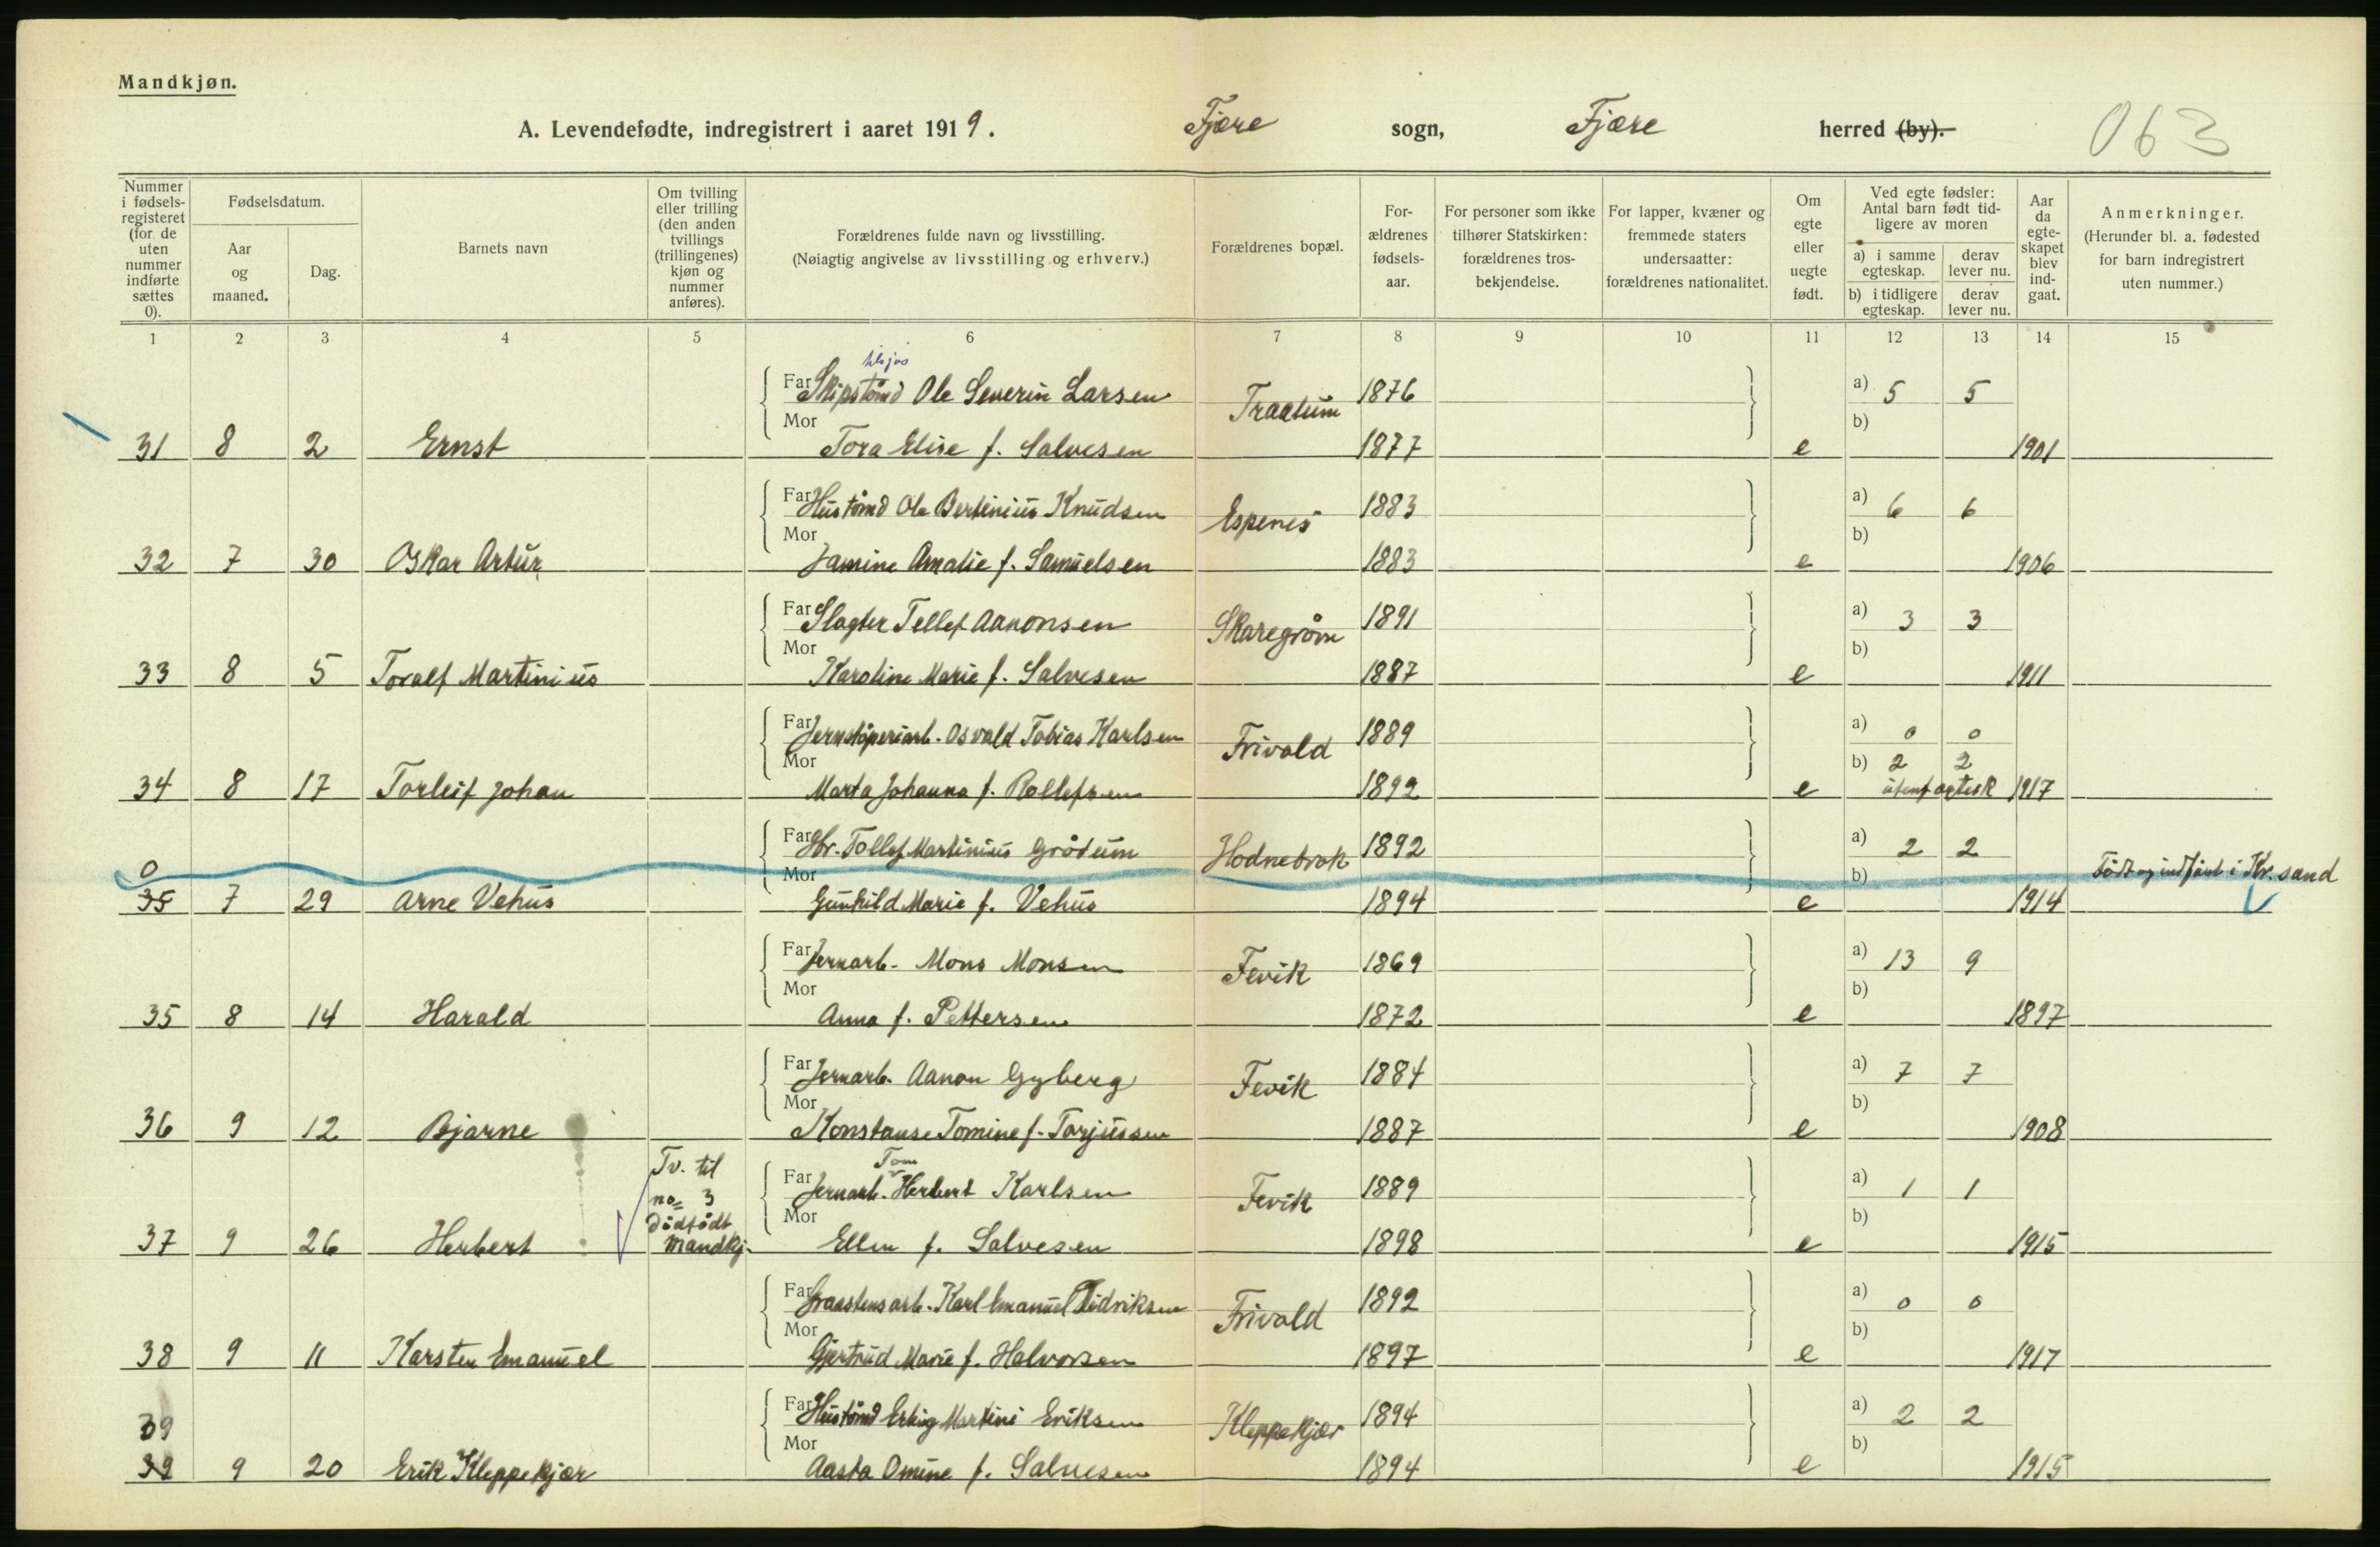 Mandkjøn.
A. Levendefødte, indregistrert i aaret 1919. Fjære sogn, Fjære herred (by). 063
Nummer i fødsels-registeret (for de uten nummer indførte sættes 0).
Fødselsdatum.
Aar og maaned.
Dag.
Barnets navn
Om tvilling eller trilling (den anden tvillings (trillingenes) kjøn og nummer anføres).
Forældrenes fulde navn og livsstilling.
(Nøiagtig angivelse av livsstilling og erhverv.)
Forældrenes bopæl.
For-ældrenes fødsels-aar.
For personer som ikke tilhører Statskirken: forældrenes tros-bekjendelse.
For lapper, kvæner og fremmede staters undersaatter: forældrenes nationalitet.
Om egte eller uegte født.
Ved egte fødsler: Antal barn født tid-ligere av moren
a) i samme egteskap. derav lever nu.
b) i tidligere egteskap. derav lever nu.
Aar da egte-skapet blev ind-gaat.
Anmerkninger.
(Herunder bl. a. fødested for barn indregistrert uten nummer.)
1 2 3 4 5 6 7 8 9 10 11 12 13 14 15
Far Skipstømd Ole Severin Larsen Traalum 1876 a) 5 5
Mor b)
31 8 2 Ernst Tora Elise f. Salvesen 1877 e 1901
Far Hustømd Ole Bertinius Knudsen Espenes 1883 a) 6 6
Mor b)
32 7 30 Oskar Artur Jamine Amalie f. Samuelsen 1883 e 1906
Far Slagter Tellef Aanonsen Skaregrøm 1891 a) 3 3
Mor b)
33 8 5 Toralf Martinius Karoline Marie f. Salvesen 1887 e 1911
Far Jernstøperiarb. Osvald Tobias Karlsen Frivold 1889 a) 0 0
Mor b) 2 2
34 8 17 Torleif Johan Marta Johanna f. Rollefsen 1892 e utenf egtesk 1917
Far Gbr. Tollef Martinius Grødum Hodnebrok 1892 a) 2 2
0 Mor b) Født og indført i Kr.sand
35 7 29 Arne Vehus Gunhild Marie f. Vehus 1894 e 1914
Far Jernarb. Mons Monsen Fevik 1869 a) 13 9
Mor b)
35 8 14 Harald Anna f. Pettersen 1872 e 1897
Far Jernarb. Aanon Gyberg Fevik 1884 a) 7 7
Mor b)
36 9 12 Bjarne Konstanse Tomine f. Torjussen 1887 e 1908
Tv. til Tom
no 3 Far Jernarb. Herbert Karlsen Fevik 1889 a) 1 1
dødfødt Mor b)
37 9 26 Herbert mandkj. Ellen f. Salvesen 1898 e 1915
Far Graastensarb. Karl Emanuel Didriksen Frivold 1892 a) 0 0
Mor b)
38 9 11 Karsten Emanuel Gjertrud Marie f. Halvorsen 1897 e 1917
Far Hustømd Erling Martini Eriksen Kleppekjær 1894 a) 2 2
39 Mor b)
39 9 20 Erik Kleppekjær Aasta Omine f. Salvesen 1894 e 1915